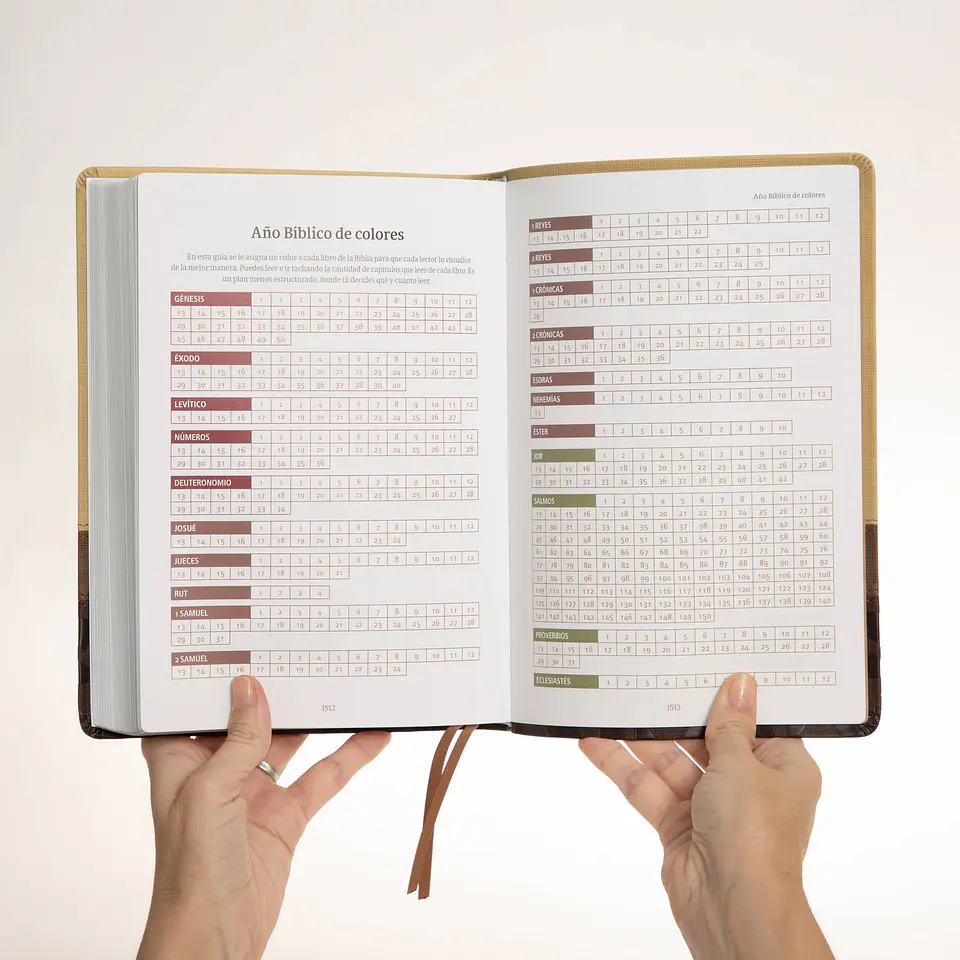 Año Bíblico de colores
En esta guía se le asigna un color a cada libro de la Biblia para que cada lector lo visualice
de la mejor manera. Puedes leer e ir tachando la cantidad de capítulos que lees de cada libro. Es
un plan menos estructurado, donde tú decides qué y cuánto leer.
GÉNESIS 1 2 3 4 5 6 7 8 9 10 11 12
13 14 15 16 17 18 19 20 21 22 23 24 25 26 27 28
29 30 31 32 33 34 35 36 37 38 39 40 41 42 43 44
45 46 47 48 49 50
ÉXODO 1 2 3 4 5 6 7 8 9 10 11 12
13 14 15 16 17 18 19 20 21 22 23 24 25 26 27 28
29 30 31 32 33 34 35 36 37 38 39 40
LEVÍTICO 1 2 3 4 5 6 7 8 9 10 11 12
13 14 15 16 17 18 19 20 21 22 23 24 25 26 27
NÚMEROS 1 2 3 4 5 6 7 8 9 10 11 12
13 14 15 16 17 18 19 20 21 22 23 24 25 26 27 28
29 30 31 32 33 34 35 36
DEUTERONOMIO 1 2 3 4 5 6 7 8 9 10 11 12
13 14 15 16 17 18 19 20 21 22 23 24 25 26 27 28
29 30 31 32 33 34
JOSUÉ 1 2 3 4 5 6 7 8 9 10 11 12
13 14 15 16 17 18 19 20 21 22 23 24
JUECES 1 2 3 4 5 6 7 8 9 10 11 12
13 14 15 16 17 18 19 20 21
RUT 1 2 3 4
1 SAMUEL 1 2 3 4 5 6 7 8 9 10 11 12
13 14 15 16 17 18 19 20 21 22 23 24 25 26 27 28
29 30 31
2 SAMUEL 1 2 3 4 5 6 7 8 9 10 11 12
13 14 15 16 17 18 19 20 21 22 23 24
1512
Año Bíblico de colores
1 REYES 1 2 3 4 5 6 7 8 9 10 11 12
13 14 15 16 13 18 19 20 21 22
2 REYES 1 2 3 4 5 6 7 8 9 10 11 12
13 14 15 16 17 18 19 20 21 22 23 24 25
1 CRÓNICAS 1 2 3 4 5 6 7 8 9 10 11 12
13 14 15 16 17 18 19 20 21 22 23 24 25 26 27 28
29
2 CRÓNICAS 1 2 3 4 5 6 7 8 9 10 11 12
13 14 15 16 17 18 19 20 21 22 23 24 25 26 27 28
29 30 31 32 33 34 35 36
ESDRAS 1 2 3 4 5 6 7 8 9 10
NEHEMÍAS 1 2 3 4 5 6 7 8 9 10 11 12
13
ESTER 1 2 3 4 5 6 7 8 9 10
JOB 1 2 3 4 5 6 7 8 9 10 11 12
13 14 15 16 17 18 19 20 21 22 23 24 25 26 27 28
29 30 31 32 33 34 35 36 37 38 39 40 41 42
SALMOS 1 2 3 4 5 6 7 8 9 10 11 12
13 14 15 16 17 18 19 20 21 22 23 24 25 26 27 28
29 30 31 32 33 34 35 36 37 38 39 40 41 42 43 44
45 46 47 48 49 50 51 52 53 54 55 56 57 58 59 60
61 62 63 64 65 66 67 68 69 70 71 72 73 74 75 76
77 78 79 80 81 82 83 84 85 86 87 88 89 90 91 92
93 94 95 96 97 98 99 100 101 102 103 104 105 106 107 108
109 110 111 112 113 114 115 116 117 118 119 120 121 122 123 124
125 126 127 128 129 130 131 132 133 134 135 136 137 138 139 140
141 142 143 144 145 146 147 148 149 150
PROVERBIOS 1 2 3 4 5 6 7 8 9 10 11 12
13 14 15 16 17 18 19 20 21 22 23 24 25 26 27 28
29 30 31
ECLESIASTÉS 1 2 3 4 5 6 7 9 10 11 12
1513